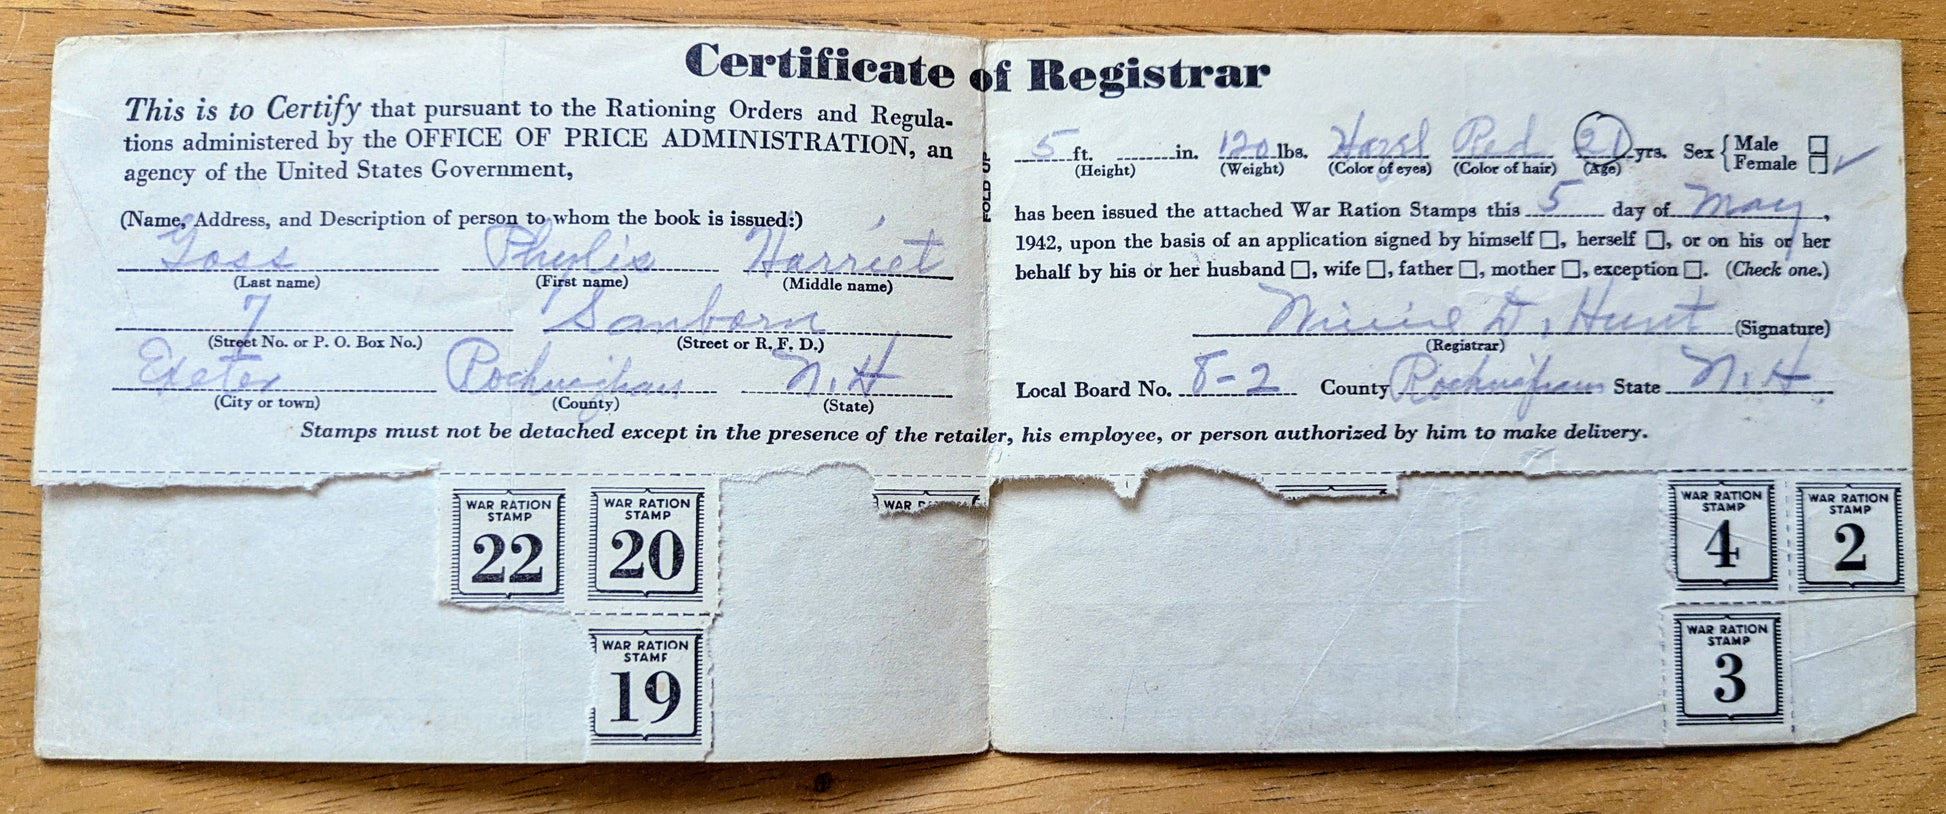 Certificate of Registrar
This is to Certify that pursuant to the Rationing Orders and Regula-
tions administered by the OFFICE OF PRICE ADMINISTRATION, an
agency of the United States Government,
(Name, Address, and Description of person to whom the book is issued:)
Goss Phylis Harriet
(Last name) (First name) (Middle name)
7 Sanborn
(Street No. or P. O. Box No.) (Street or R. F. D.)
Exeter Rockingham N.H
(City or town) (County) (State)
FOLD UP
5 ft. in. 120 lbs. Hazel Red 21 yrs. Sex { Male
Female ✓
(Height) (Weight) (Color of eyes) (Color of hair) (Age)
has been issued the attached War Ration Stamps this 5 day of May,
1942, upon the basis of an application signed by himself ☐, herself ☐, or on his or her
behalf by his or her husband ☐, wife ☐, father ☐, mother ☐, exception ☐. (Check one.)
D. Hunt (Signature)
(Registrar)
Local Board No. 8-2 County Rockingham State N.H.
Stamps must not be detached except in the presence of the retailer, his employee, or person authorized by him to make delivery.
WAR RATION
STAMP
22
WAR RATION
STAMP
20
WAR
WAR RATION
STAMP
4
WAR RATION
STAMP
2
WAR RATION
STAMP
19
WAR RATION
STAMP
3